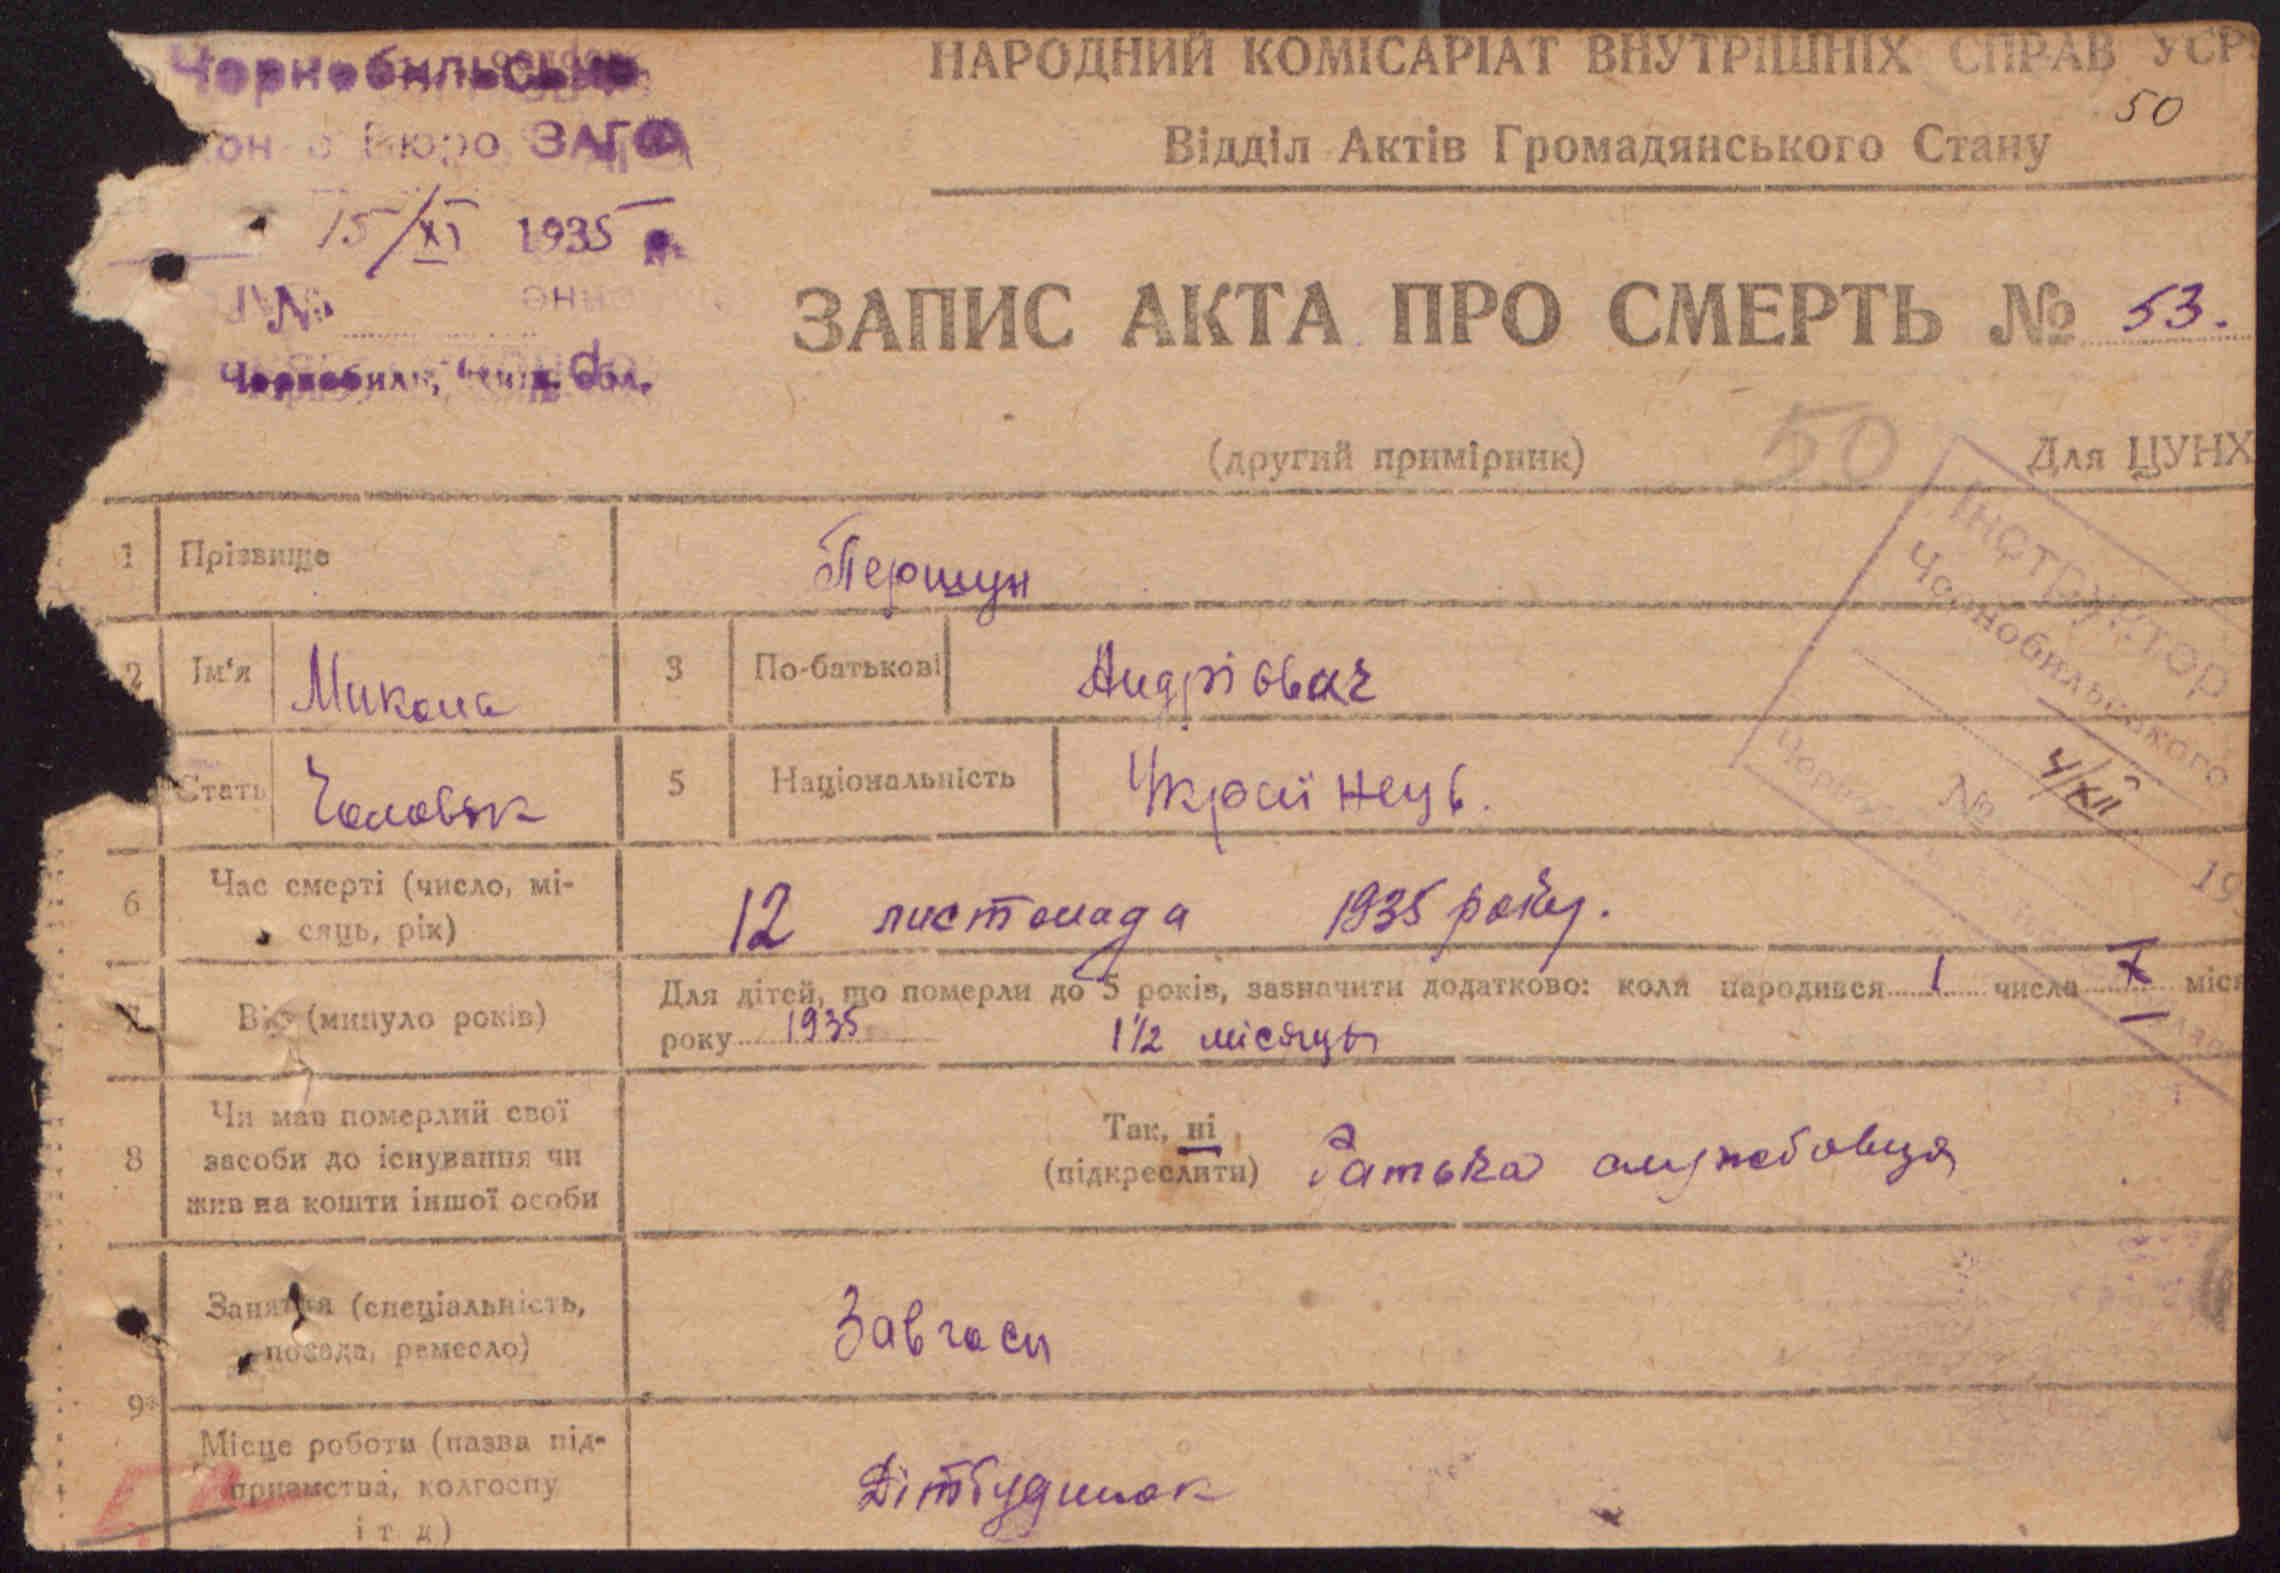 Чорнобильське
Бюро ЗАГС
15/XI 1935 р.
№
Чорнобиль, обл.
НАРОДНИЙ КОМІСАРІАТ ВНУТРІШНІХ СПРАВ УСР
50
Відділ Актів Громадянського Стану
ЗАПИС АКТА ПРО СМЕРТЬ № 53.
(другий примірник)
50
Для ЦУНХ
Інструктор
Чорнобильського
№
4/XII
19
1 Прізвище Першун
2 Ім'я Микола 3 По-батькові Андрійович
Стать Чоловік 5 Національність Українець.
6 Час смерті (число, мі-
сяць, рік) 12 листопада 1935 року.
7 Вік (минуло років) Для дітей, що померли до 5 років, зазначити додатково: коли народився 1 числа X міся
року 1935 1 1/2 місяця
8 Чи мав померлий свої
засоби до існування чи
жив на кошти іншої особи
Так, ні
(підкреслити) Батька службовця
9 Заняття (спеціальність,
посада, ремесло) Завгосп
Місце роботи (назва під-
приємства, колгоспу
і т д) Дітбудинок